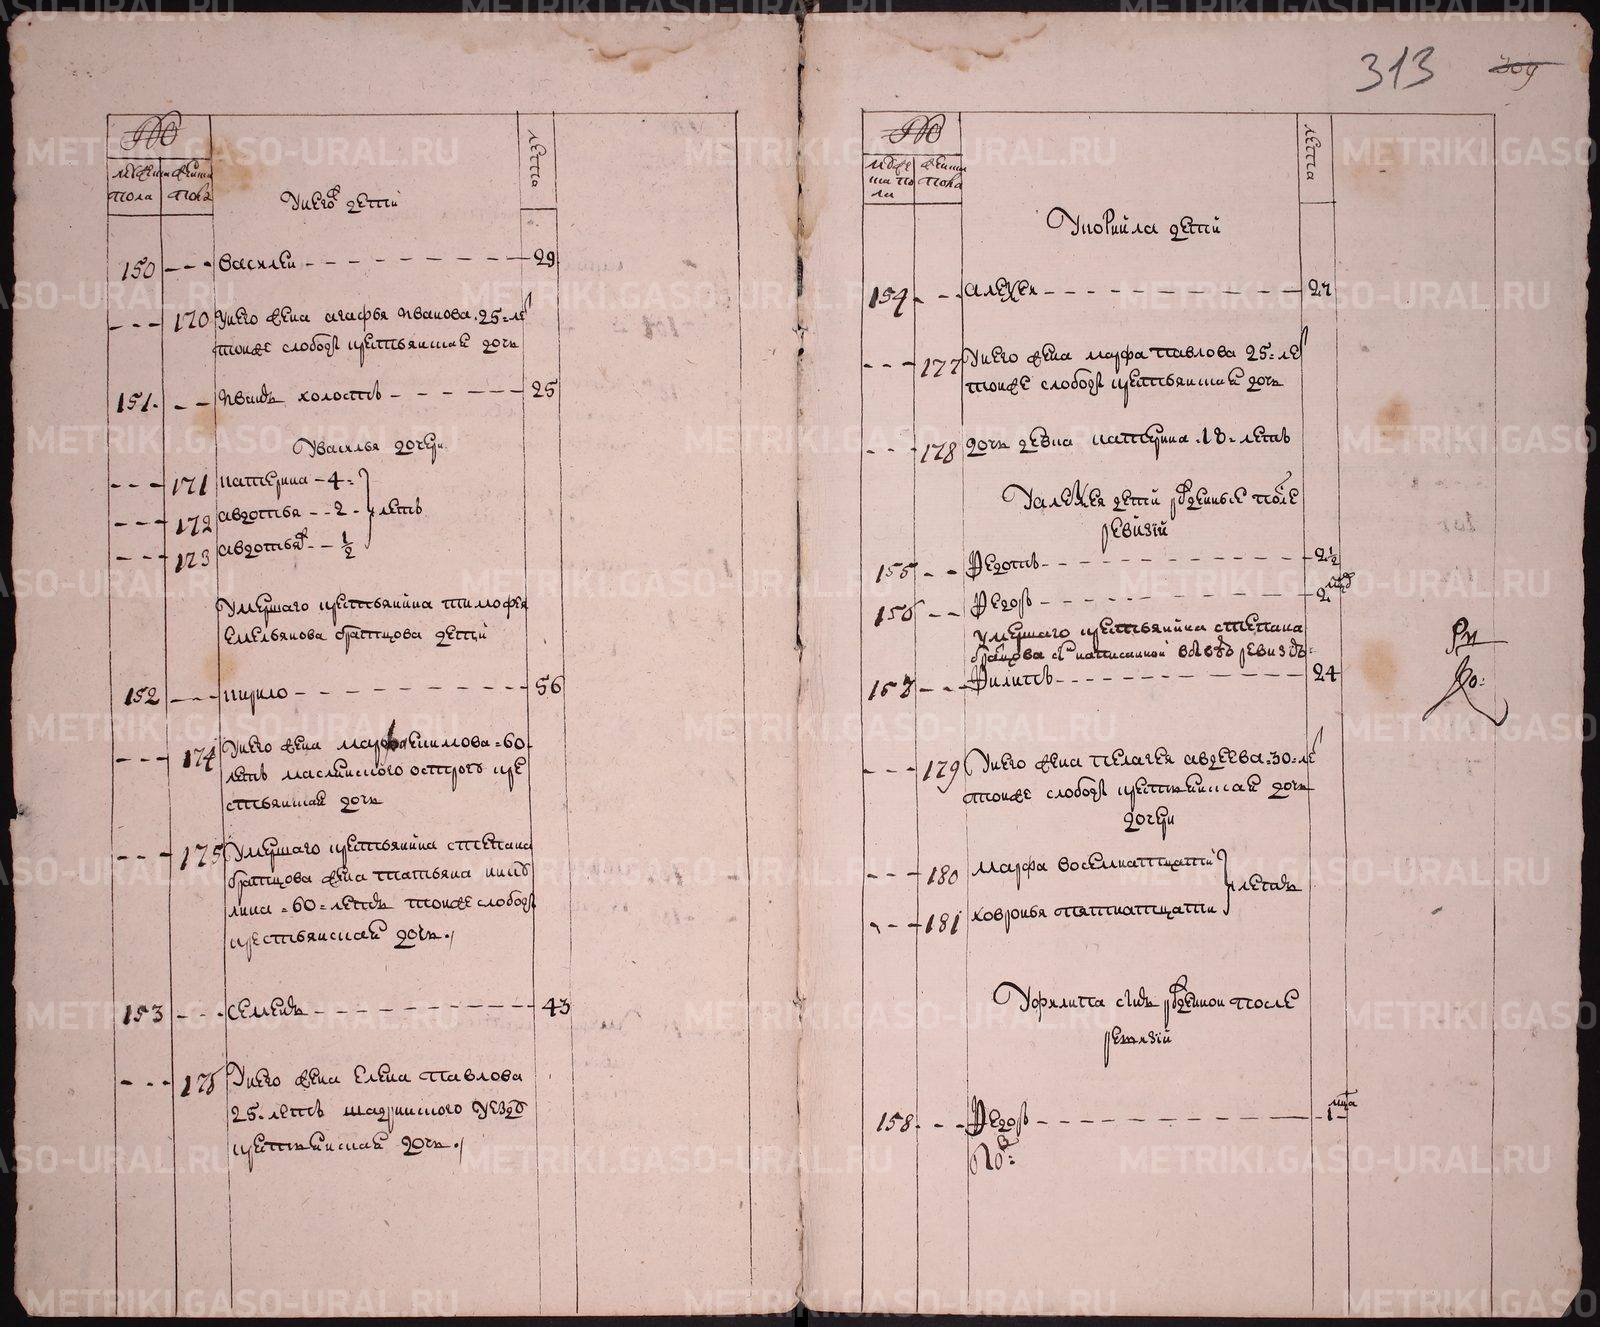 313
309
№
мужска пола
женска пола
лета
У него дети
150 Василеи 29
170 У него жена агафья Иванова 25 ле
тоиже слободы крестьянская дочь
151 Иванъ холостъ 25
У василья дочери
171 катерина 4
172 авдотья 2 летъ
173 авдотья ж 1/2
Умершаго крестьянина тимофея
емельянова братцова дети
152 кирило 56
174 У него жена марфа екимова 60
летъ маслянского острогу кре
стьянская дочь
175 Умершаго крестьянина степана
братцова жена татьяна
лина 60 летъ тоиже слободы
крестьянская дочь
153 семенъ 43
176 У него жена елена павлова
25 летъ шадринского уезду
крестьянская дочь
№
мужеска пола
женска пола
лета
У кирила дети
154 алексеи
177 У него жена марфа павлова 25 ле
тоиже слободы крестьянская дочь
178 дочь девка катерина 18 летъ
У алексея дети рожденные после
ревизии
155 Федотъ 2 1/2
156 Федоръ 2
умершаго крестьянина степана
братцова сынъ написанной въ ревизъ
157 Филипъ 24
179 У него жена пелагея авдеева 30 ле
тоиже слободы крестьянская дочь
дочери
180 марфа восемнатцати
летъ
181 ховронья пятнатцати
У филипа сынъ рожденнои после
ревизии
158 Федоръ 1